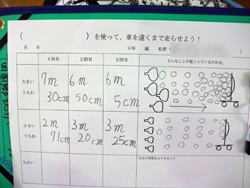 ( )を使って、車を遠くまで走らせよう!
月 日 3年 組 名前( )
1回目 2回目 3回目 どんなことが起こっているのかな。
大きい うちわ
7m 30cm 6m 50cm 6m 5cm
小さい うちわ
2m 71cm 3m 20cm 3m 25cm